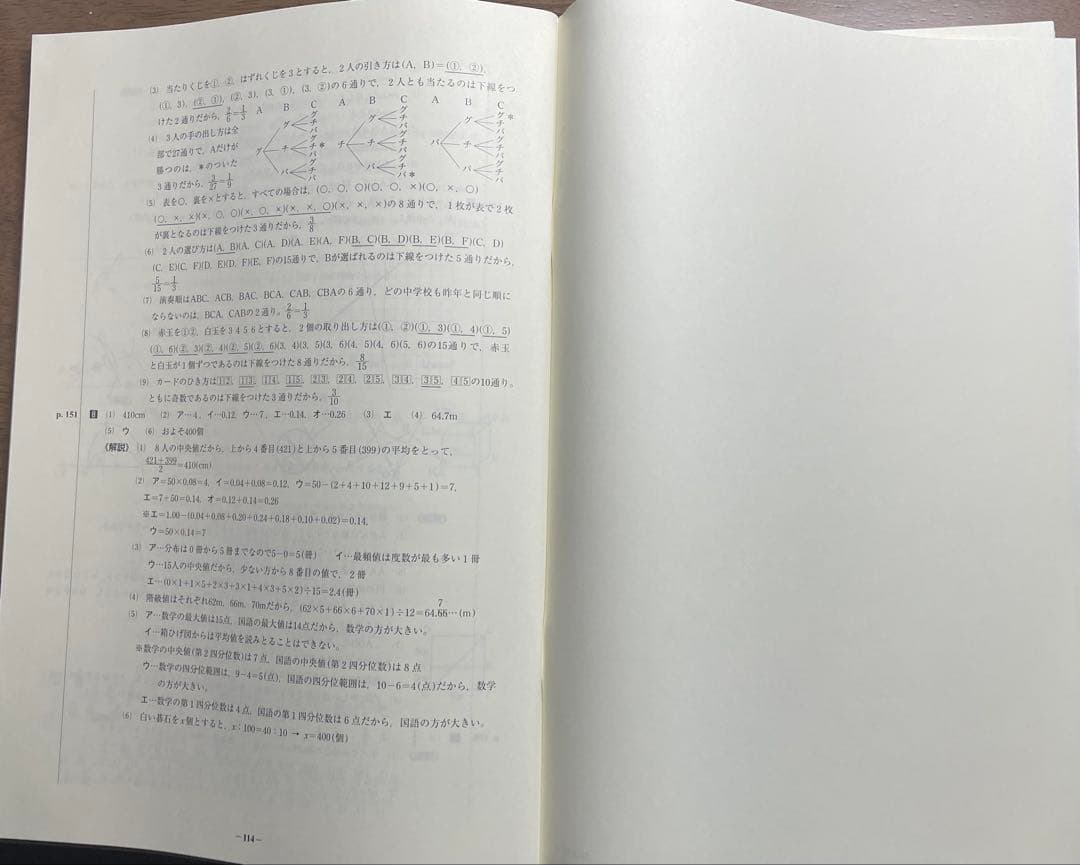 (3) 当たりくじを①, ②, はずれくじを3とすると, 2人の引き方は(A, B)=(①, ②),
(①, 3), (②, ①), (②, 3), (3, ①), (3, ②)の6通りで, 2人とも当たるのは下線をつ
けた2通りだから, 2/6=1/3
A B C A B C A B C
(4) 3人の手の出し方は全
部で27通りで, Aだけが
勝つのは, *のついた
3通りだから, 3/27=1/9
グ グ グ チ パ チ グ チ パ* パ グ チ パ
チ グ グ チ パ チ グ チ パ パ グ チ パ*
パ グ グ* チ パ チ グ チ パ パ グ チ パ
(5) 表を○, 裏を×とすると, すべての場合は, (○, ○, ○)(○, ○, ×)(○, ×, ○)
(○, ×, ×)(×, ○, ○)(×, ○, ×)(×, ×, ○)(×, ×, ×)の8通りで, 1枚が表で2枚
が裏となるのは下線をつけた3通りだから, 3/8
(6) 2人の選び方は(A, B)(A, C)(A, D)(A, E)(A, F)(B, C)(B, D)(B, E)(B, F)(C, D)
(C, E)(C, F)(D, E)(D, F)(E, F)の15通りで, Bが選ばれるのは下線をつけた5通りだから,
5/15=1/3
(7) 演奏順はABC, ACB, BAC, BCA, CAB, CBAの6通り, どの中学校も昨年と同じ順に
ならないのは, BCA, CABの2通り。2/6=1/3
(8) 赤玉を①②, 白玉を3 4 5 6とすると, 2個の取り出し方は(①, ②)(①, 3)(①, 4)(①, 5)
(①, 6)(②, 3)(②, 4)(②, 5)(②, 6)(3, 4)(3, 5)(3, 6)(4, 5)(4, 6)(5, 6)の15通りで, 赤玉
と白玉が1個ずつであるのは下線をつけた8通りだから, 8/15
(9) カードのひき方は12, 13, 14, 15, 23, 24, 25, 34, 35, 45の10通り。
ともに奇数であるのは下線をつけた3通りだから, 3/10
p. 151 8 (1) 410cm (2) ア…4, イ…0.12, ウ…7, エ…0.14, オ…0.26 (3) エ (4) 64.7m
(5) ウ (6) およそ400個
《解説》 (1) 8人の中央値だから, 上から4番目(421)と上から5番目(399)の平均をとって,
421+399/2=410(cm)
(2) ア=50×0.08=4, イ=0.04+0.08=0.12, ウ=50-(2+4+10+12+9+5+1)=7,
エ=7÷50=0.14, オ=0.12+0.14=0.26
※エ=1.00-(0.04+0.08+0.20+0.24+0.18+0.10+0.02)=0.14,
ウ=50×0.14=7
(3) ア…分布は0冊から5冊までなので5-0=5(冊) イ…最頻値は度数が最も多い1冊
ウ…15人の中央値だから, 少ない方から8番目の値で, 2冊
エ…(0×1+1×5+2×3+3×1+4×3+5×2)÷15=2.4(冊)
(4) 階級値はそれぞれ62m, 66m, 70mだから, (62×5+66×6+70×1)÷12=64.66…(m)
7
(5) ア…数学の最大値は15点, 国語の最大値は14点だから, 数学の方が大きい。
イ…箱ひげ図からは平均値を読みとることはできない。
※数学の中央値(第2四分位数)は7点, 国語の中央値(第2四分位数)は8点
ウ…数学の四分位範囲は, 9-4=5(点), 国語の四分位範囲は, 10-6=4(点)だから, 数学
の方が大きい。
エ…数学の第1四分位数は4点, 国語の第1四分位数は6点だから, 国語の方が大きい。
(6) 白い碁石をx個とすると, x:100=40:10 → x=400(個)
-114-